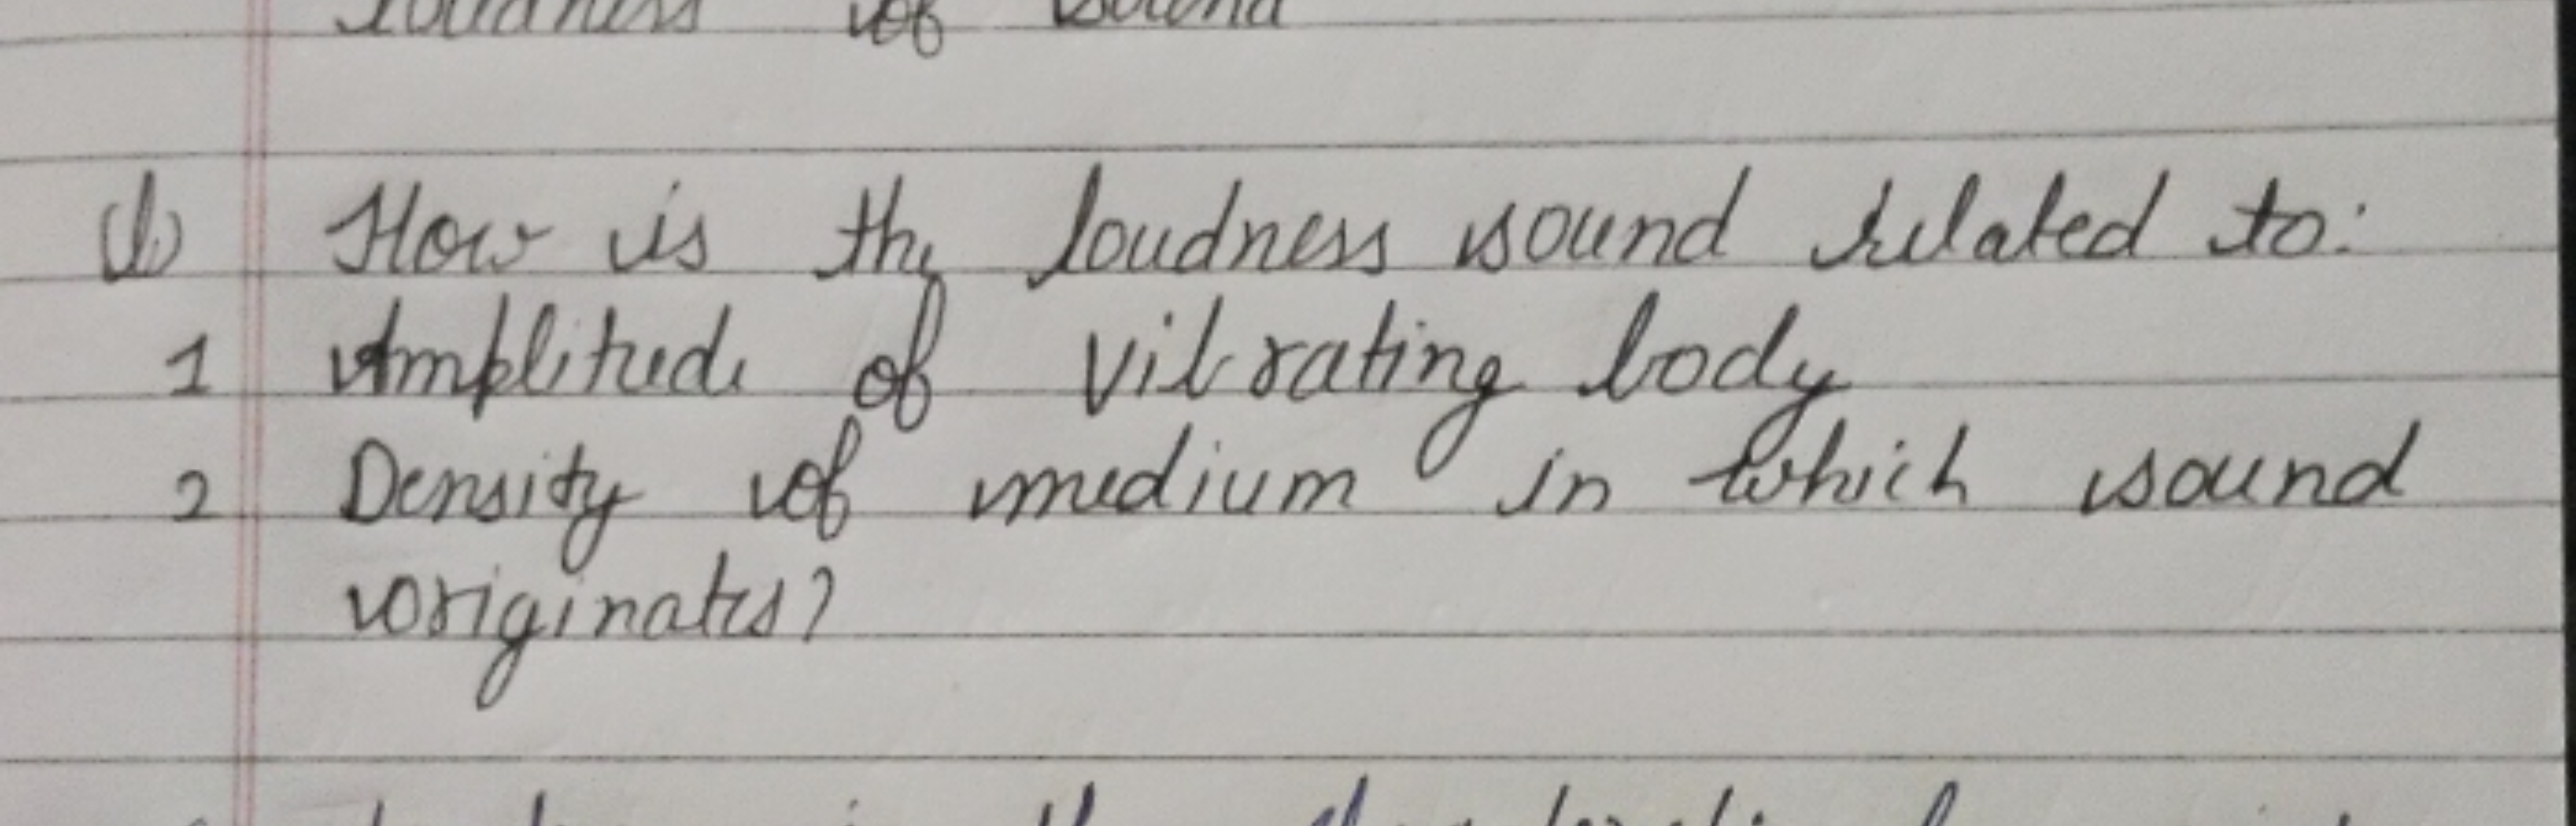 loudness of sound
(b) How is the loudness sound related to:
1 Amplitude of vibrating body
2 Density of medium in which sound
originates?